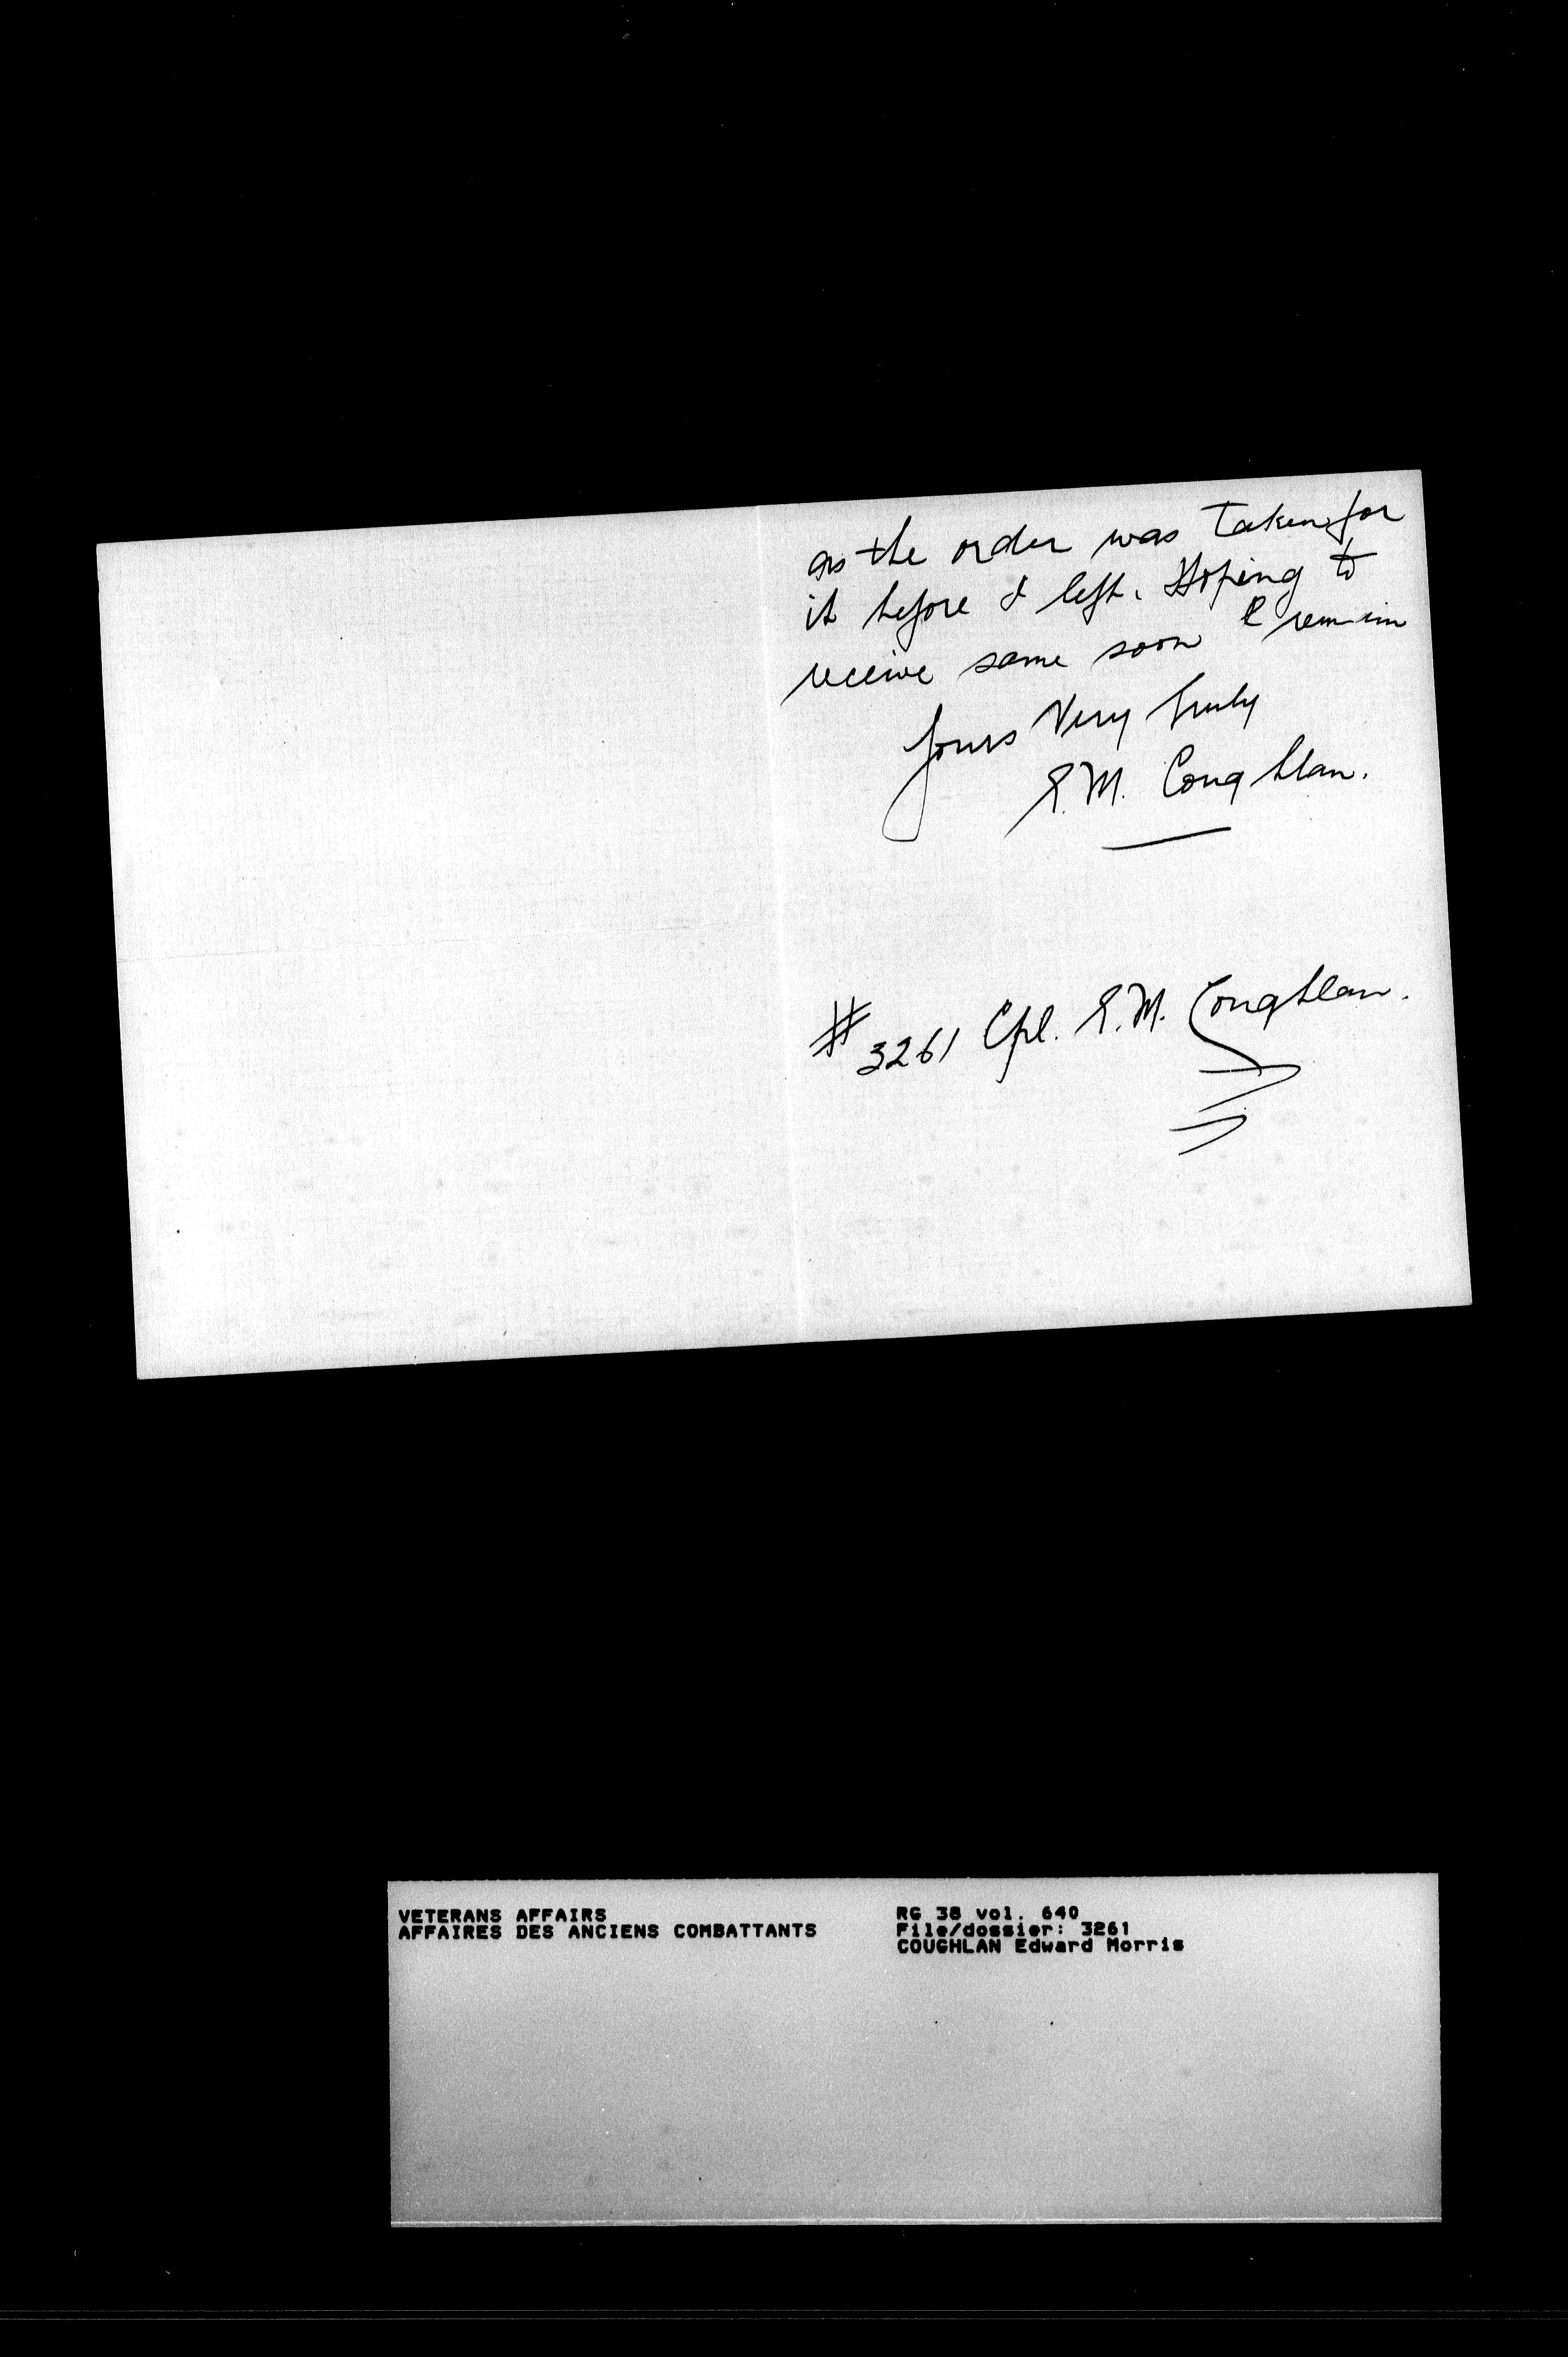 as the order was taken for
it before I left. Hoping to
receive same soon I remain
Yours Very Truly
E.M. Coughlan.
# 3261 Cpl. E.M. Coughlan.
VETERANS AFFAIRS
AFFAIRES DES ANCIENS COMBATTANTS
RG 38 vol. 640
File/dossier: 3261
COUGHLAN Edward Morris